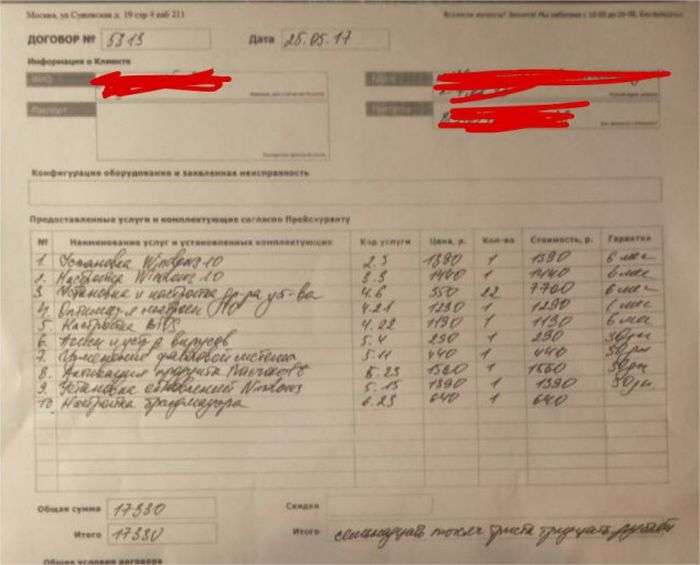 Москва, ул Сущевская д. 19 стр 4 каб 211
Звоните Мы работаем с 10:00 до 20:00, без выходных
ДОГОВОР № 5313 Дата 25.05.17
Информация о Клиенте
Паспорт
Конфигурация оборудования и заявленная неисправность
Предоставленные услуги и комплектующие согласно Прейскуранту
№ Наименование услуг и установленных комплектующих Код услуги Цена, р. Кол-во Стоимость, р. Гарантия
1 Установка Windows 10 2.3 1390 1 1390 6 мес
2. Настройка Windows 10 3.3 1440 1 1440 6 мес
3 Установка и настройка др-ра уз-ва 4.6 350 22 7700 6 мес
4. настройка ПО 4.21 1290 1 1290 6 мес
5 Настройка BIOS 4.02 1190 1 1190 6 мес
6 Поиск и уст-р вирусов 5.4 290 1 290 30 дн
7 Изменение файловой системы 5.11 440 1 440 30 дн
8. Активация продукта Microsoft 5.23 1560 1 1560 30 дн
9 Установка обновлений Windows 5.15 1390 1 1390 30 дн
10 Настройка брандмауэра 6.23 640 1 640
Общая сумма 17330 Скидка
Итого 17330 Итого семнадцать тысяч триста тридцать рублей
Общие условия договора